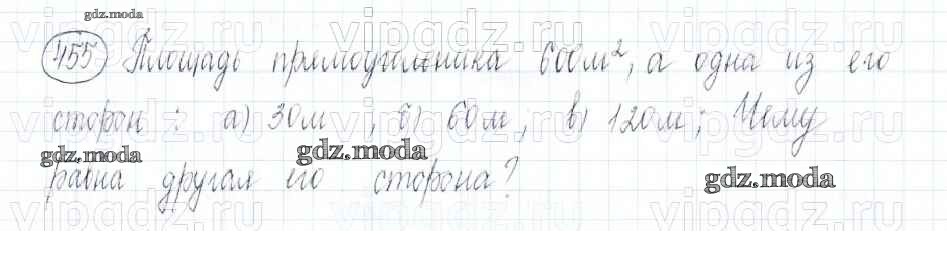 gdz.moda
455 Площадь прямоугольника 600м², а одна из его
сторон : а) 30м ; б) 60м; в) 120м; Чему
gdz.moda gdz.moda
равна другая его сторона?
gdz.moda
vipgdz.ru vipgdz.ru vipgdz.ru
vipgdz.ru vipgdz.ru vipgdz.ru
vipgdz.ru vipgdz.ru vipgdz.ru